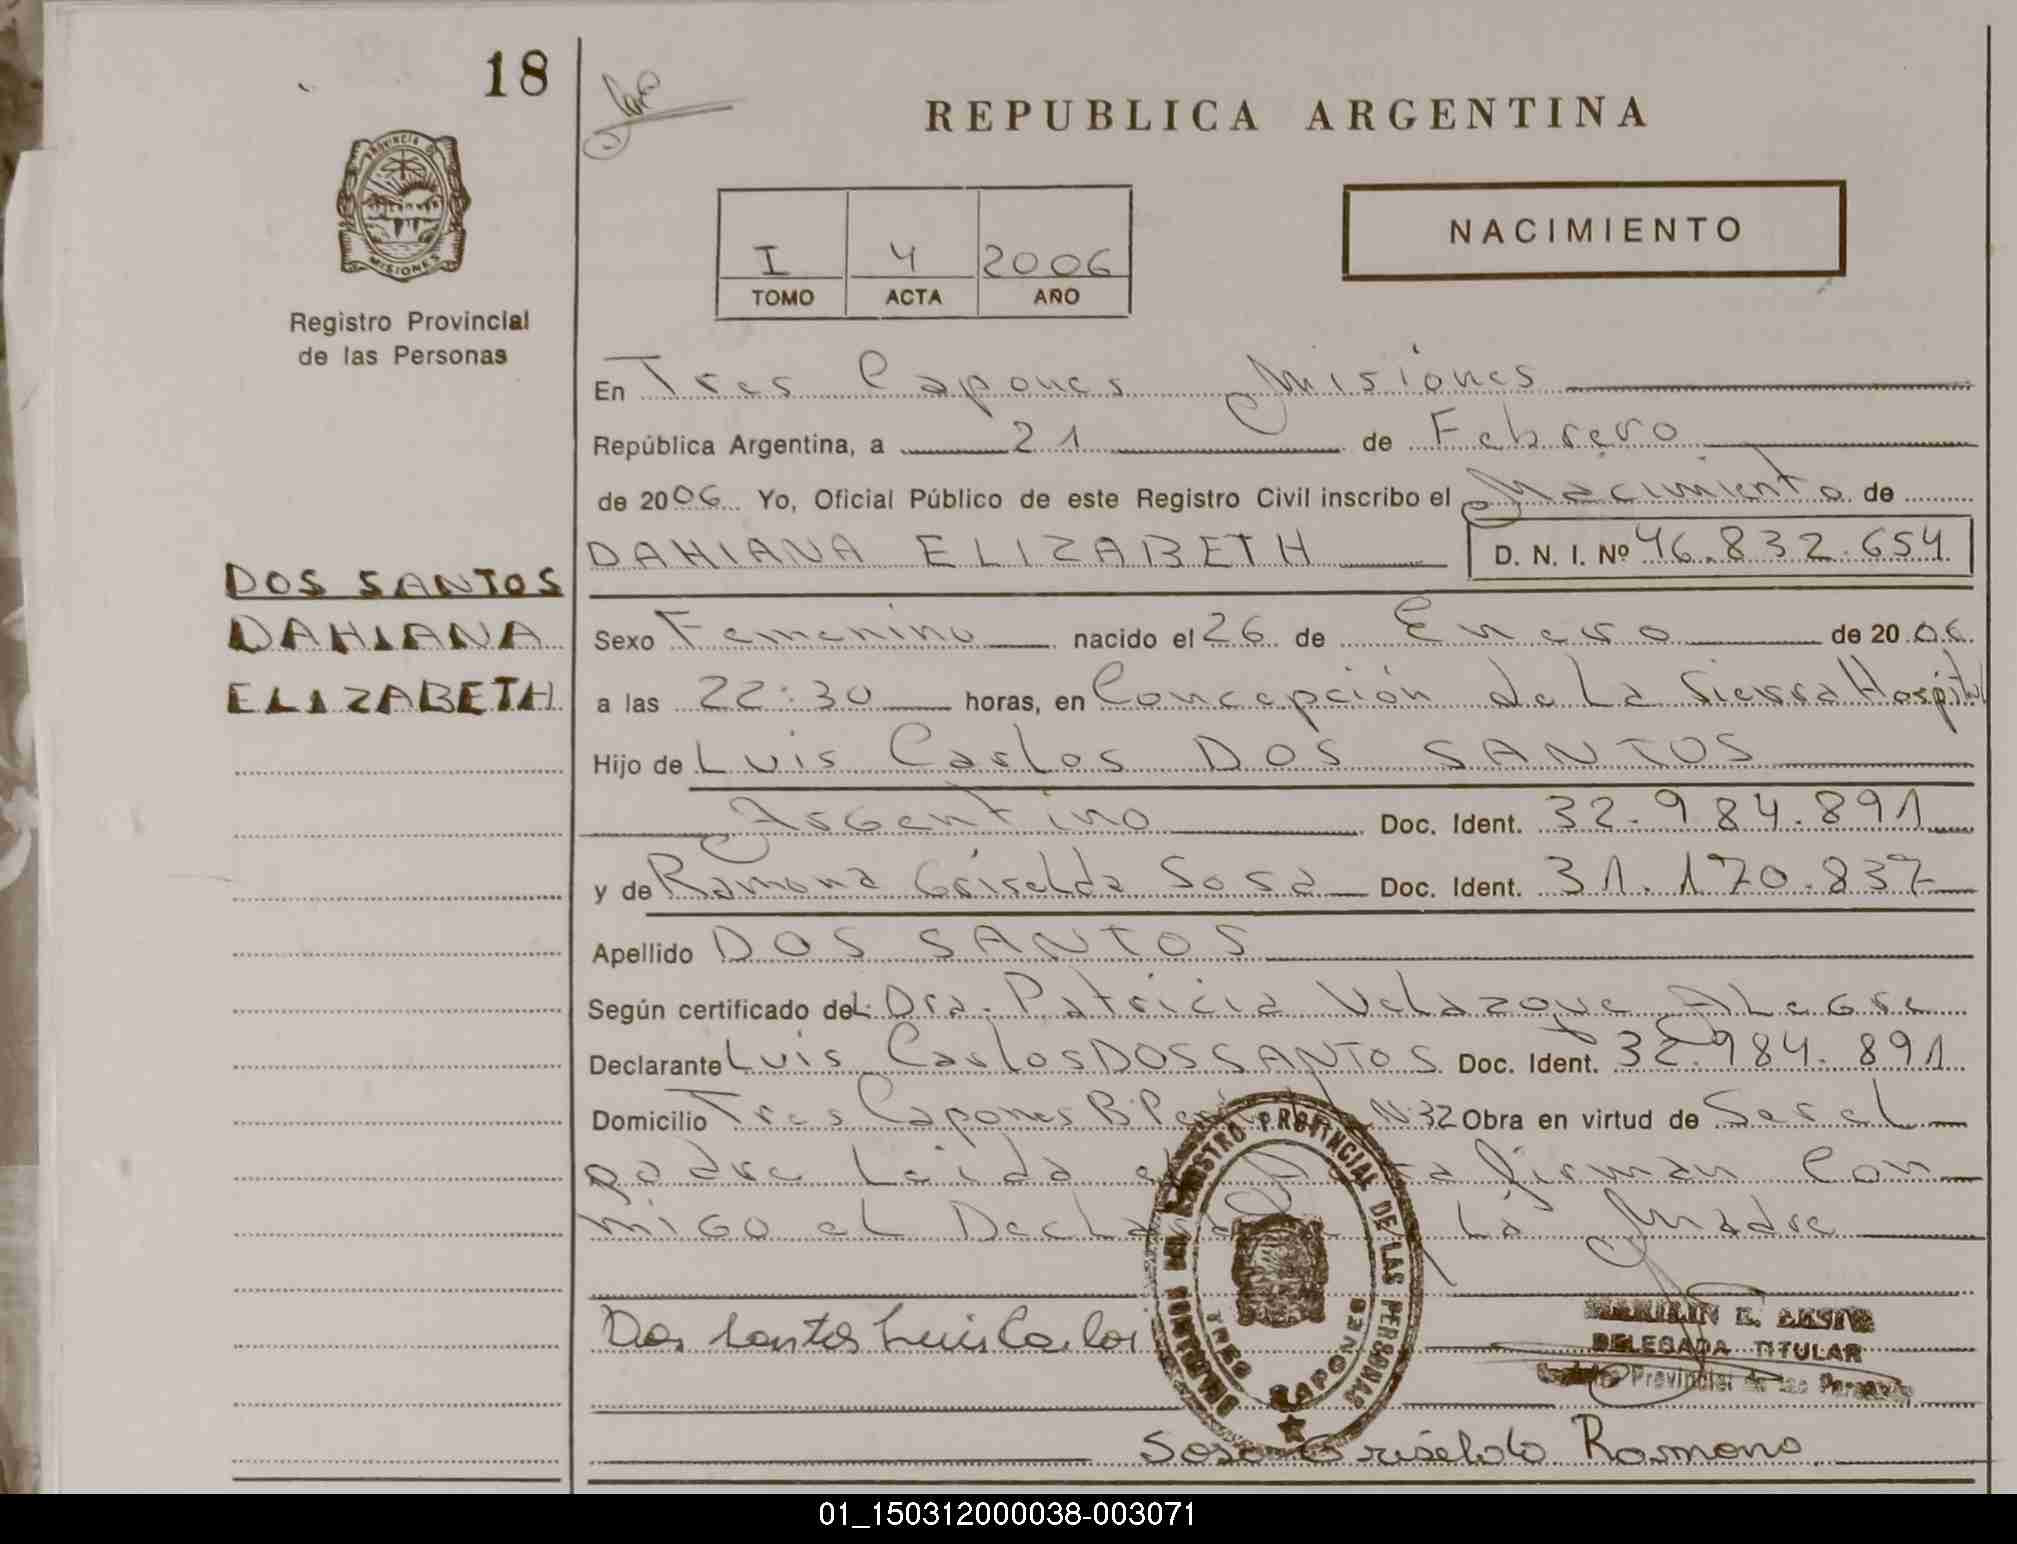 18
REPUBLICA ARGENTINA
PROVINCIA D
MISIONES
NACIMIENTO
I 4 2006
TOMO ACTA AÑO
Registro Provincial
de las Personas
En Tres Capones Misiones
República Argentina, a 21 de Febrero
de 2006 Yo, Oficial Público de este Registro Civil inscribo el Nacimiento de
DAHIANA ELIZABETH D. N. I. Nº 46.832.654
DOS SANTOS
DAHIANA
ELIZABETH
Sexo Femenino nacido el 26 de Enero de 2006
a las 22:30 horas, en Concepción de La Sierra Hospital
Hijo de Luis Carlos DOS SANTOS
Argentino Doc. Ident. 32.984.891
y de Ramona Griselda Sosa Doc. Ident. 31.170.837
Apellido DOS SANTOS
Según certificado deL: Dra. Patricia Velazque Alegre
Declarante Luis Carlos DOS SANTOS Doc. Ident. 32.984.891
Domicilio Tres Capones B: N: 32 Obra en virtud de Ser el
padre Leida el firman Con
migo el La Madre
REGISTRO PROVINCIAL DE LAS PERSONAS
TRES CAPONES
Dos Santos Luis Carlos
E.
DELEGADA TITULAR
Provincial de las Personas
Sosa Griselda Ramona
01_150312000038-003071